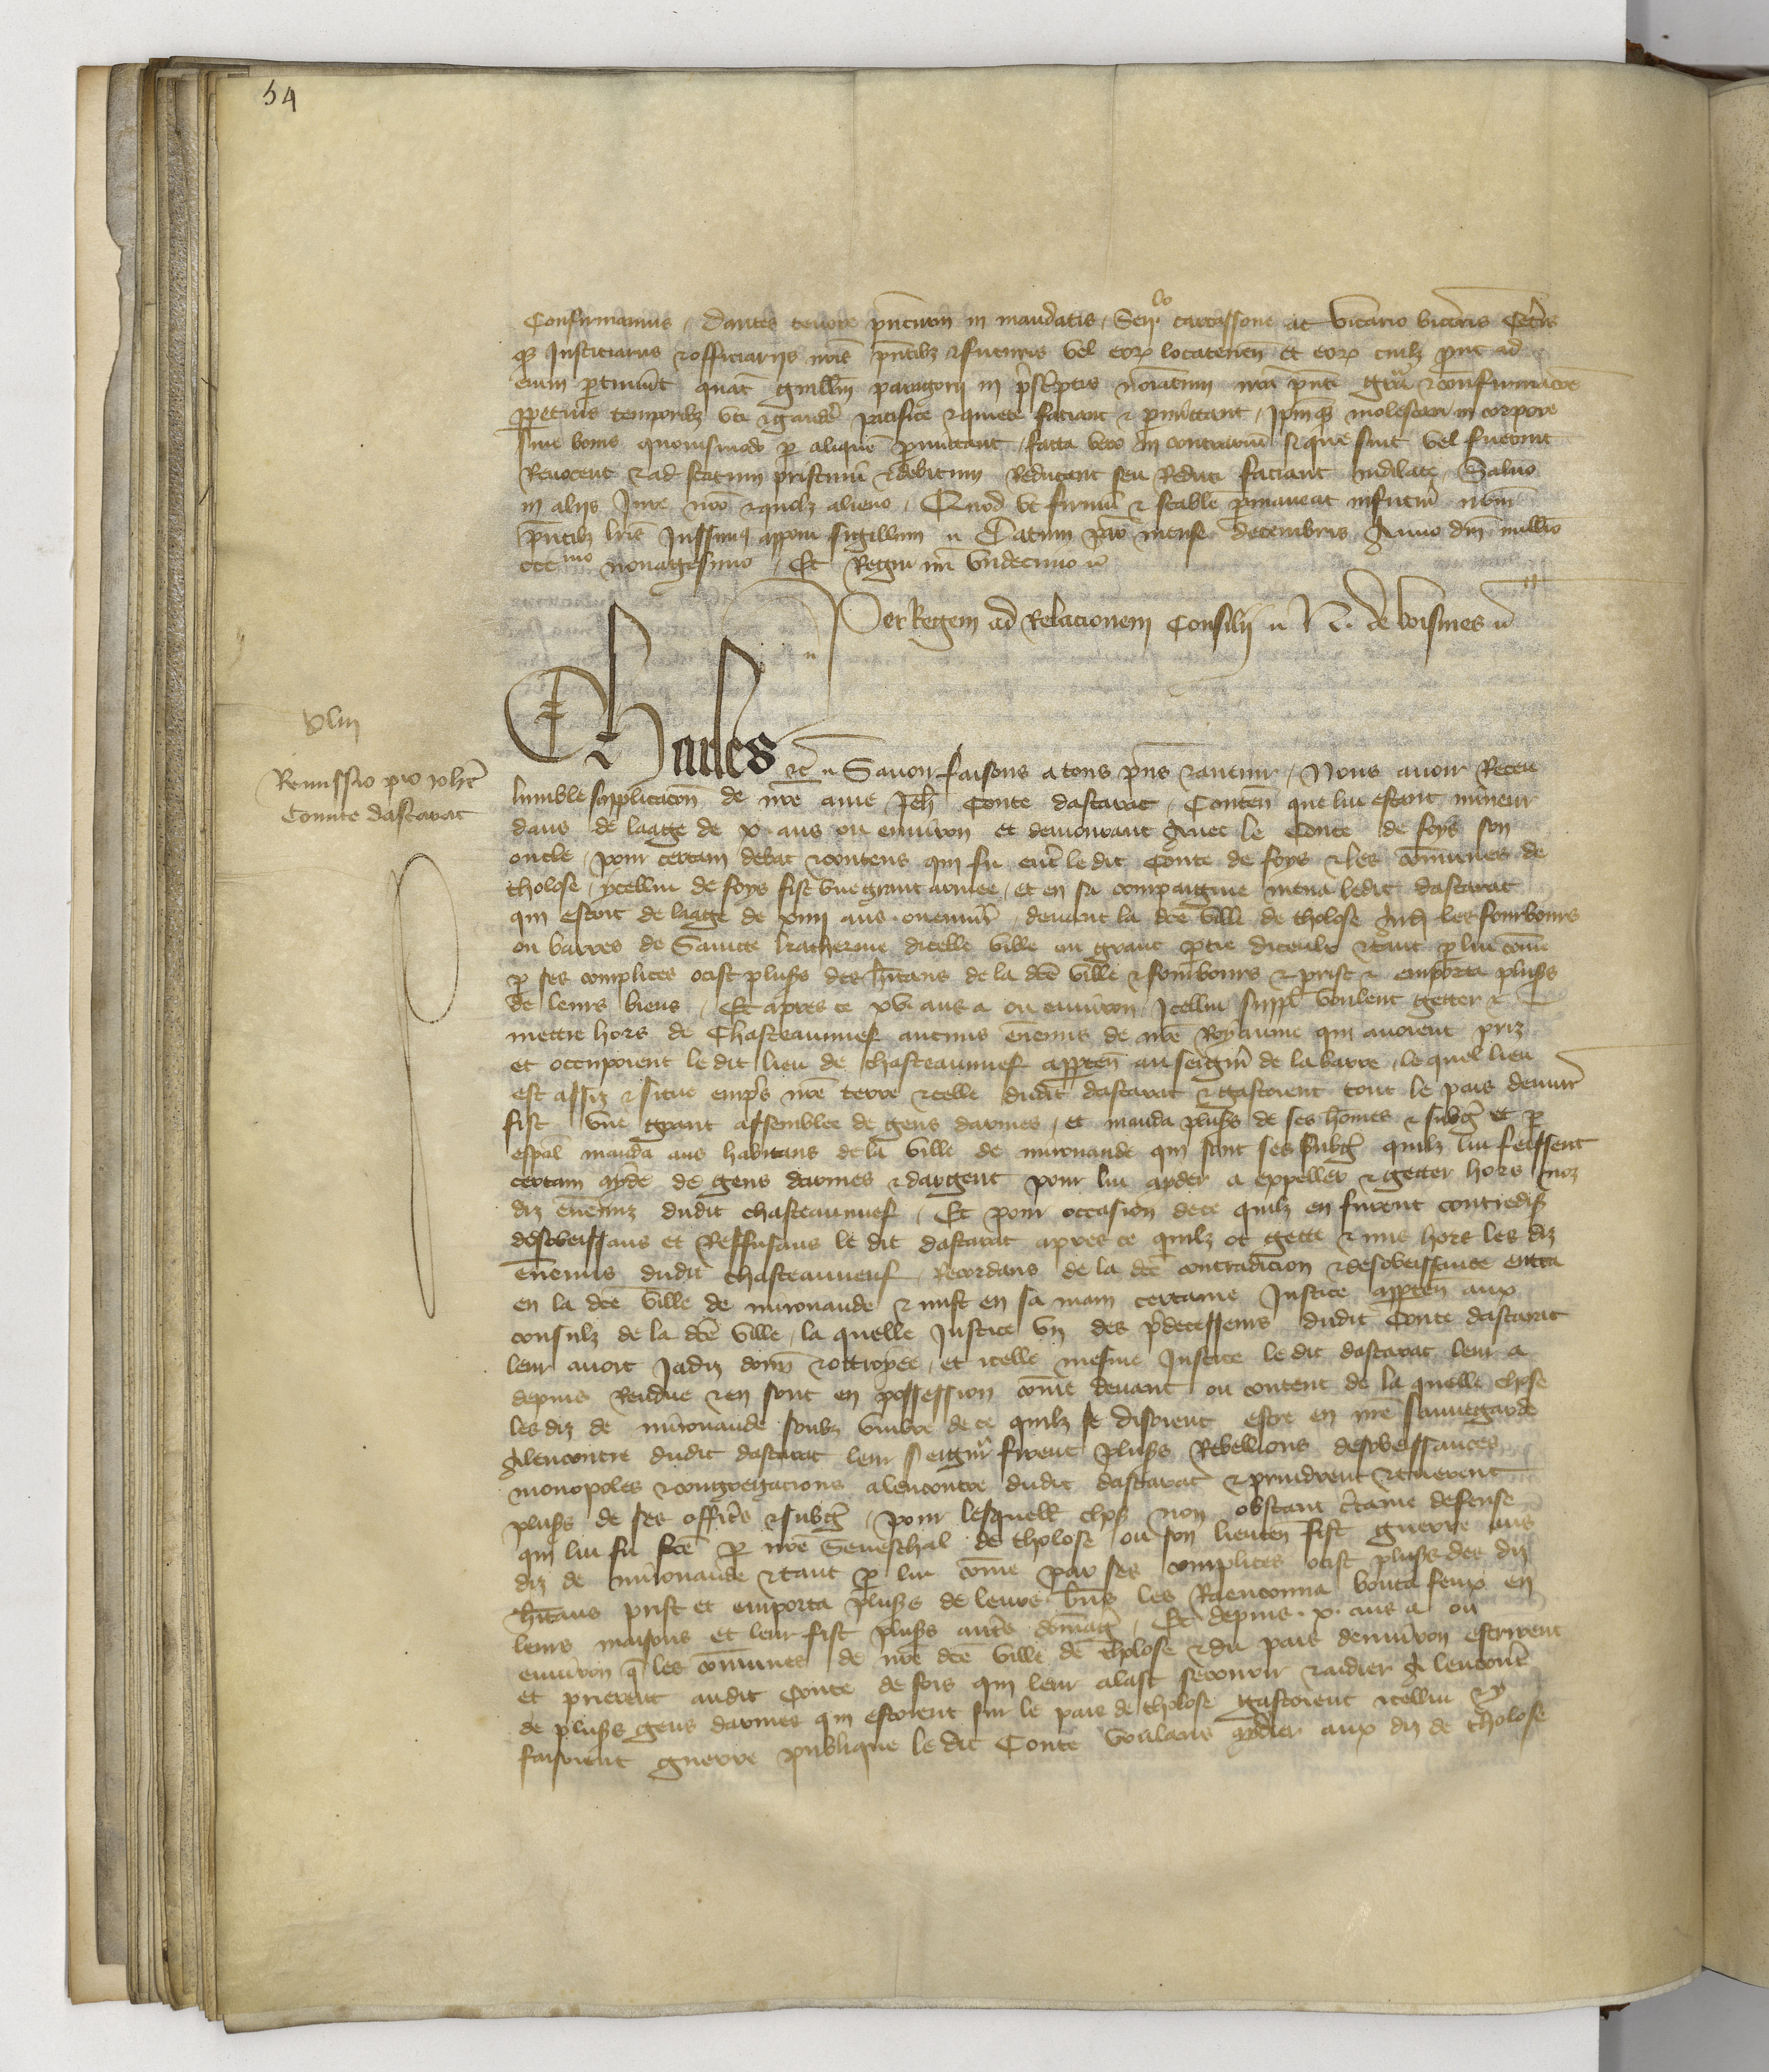 54
Confirmamus, Dantes tenore pñcium in mandatis, Senlo carcassone ac vicario biterris Ceteris
qz Justiciariis & officiariis nris pñtibz & futuris vel eorum locateneñ et eorum cuilz prout ad
eum ptinuerit quatz Guillm paragorii in pscriptis noiatum nra pñte gra & confirmacoe
ppetuis temporibz uti & gaudere pacifice & quiete faciant & pmittant, Ipmqz molestari in corpore
sive bonis quovismodo p aliquem pmittant, facta vero in contrarium si que sint vel fuerint
Revocent & ad statum pristinum & debitum Reducant seu Reduci faciant indilate, Salvo
in aliis Jure nro & quolz alieno, Quod ut firmum & stabile pmaneat in futurum nrm
pñtibz lris Jussimus apponi sigillum Datum mense decembris Anno dni millio
cccmo nonagesimo, Et Regni nri undecimo
Per Regem ad Relacionem Consilii N. de voisines
xliii
Remissio pro Johe
Comite dastarac
Charles &c Savoir faisons a tous pñs & avenir, Nous avoir Receu
lumble supplicacon de nre ame Jeh Conte dastarac, Conteñ que lui estant mineur
dans de laage de x ans ou environ et demourant Avec le Conte de foys son
oncle, pour certain debat & contens qui fu entre le dit Conte de foys & les communes de
tholose, ycellui de foys fist une grant armee, et en sa compaignie mena ledit dastarac
qui estoit de laage de xiiii ans ou envir devant la dce ville de tholose les fourbours
ou barres de Saincte katherine dicelle ville en grant ptie diceulx & tant p lui come
p ses complices ocist plusrs des hitans de la dce ville & fourbours & prist & emporta plusrs
de leurs biens, Et apres ce xvi ans a ou environ Jcellui suppl voulent getter &
mettre hors de Chasteaunuef aucuns ennemis de nre Royaume qui avoient priz
et occupoient le dit lieu de chasteaunuef apparteñ au seigneur de la barre, le quel lieu
est assiz & situe empres nre terre & celle dudit dastarac & gastoient tout le pais denvir
fist une grant assemblee de gens darmes, et manda plusrs de ses hommes & subgez et p
espal manda aus habitans de la ville de mirouande qui sont ses subgez quilz lui feissent
certain ayde de gens darmes & dargent pour lui ayder a expeller & getter hors noz
diz ennemiz dudit chasteaunuef, Et pour occasion de ce quilz en furent contredisans
desobeissans et Reffusans le dit dastarac apres ce quilz ot gette & mis hors les diz
ennemis dudit chasteaunuef, Recordans de la dce contradicion & desobeissance entra
en la dce ville de mirouande & mist en sa main certaine Justice apparteñ aux
consulz de la dce ville, la quelle Justice un des predecesseurs dudit Conte dastarac
leur avoit Jadiz donee & ottroyee, et icelle mesme Justice le dit dastarac leur a
depuis Rendue & en sont en possession come devant ou content de la quelle chose
les diz de mirouande soubz umbre de ce quilz se disoient estre en nre sauvegarde
Alencontre dudit dastarac leur seigneur firent plusrs Rebellions desobeissances
monopoles & congregacions alencontre dudit dastarac & prindrent & tuerent
plusrs de ses officiers & subgez, pour lesquelles choses non obstant certaine defense
qui lui fu fce p nre Seneschal de tholose ou son lieuteñ fist guerre aus
diz de mirouande & tant p lui come par ses complices ocist plusrs des diz
hitans prist et emporta plusrs de leurs biens les Raenconna bouta feux en
leurs maisons et leur fist plusrs autres dommages, Et depuis x ans a ou
environ q les communes de nre dce ville de tholose & du pais denviron escrivirent
et prierent audit Conte de fois qui leur alast secourir & aidier A lencontre
de plusrs gens darmes qui estoient sur le pais de tholose gastoient icellui &
faisoient guerre publique le dit Conte voulans aydier aux diz de tholose